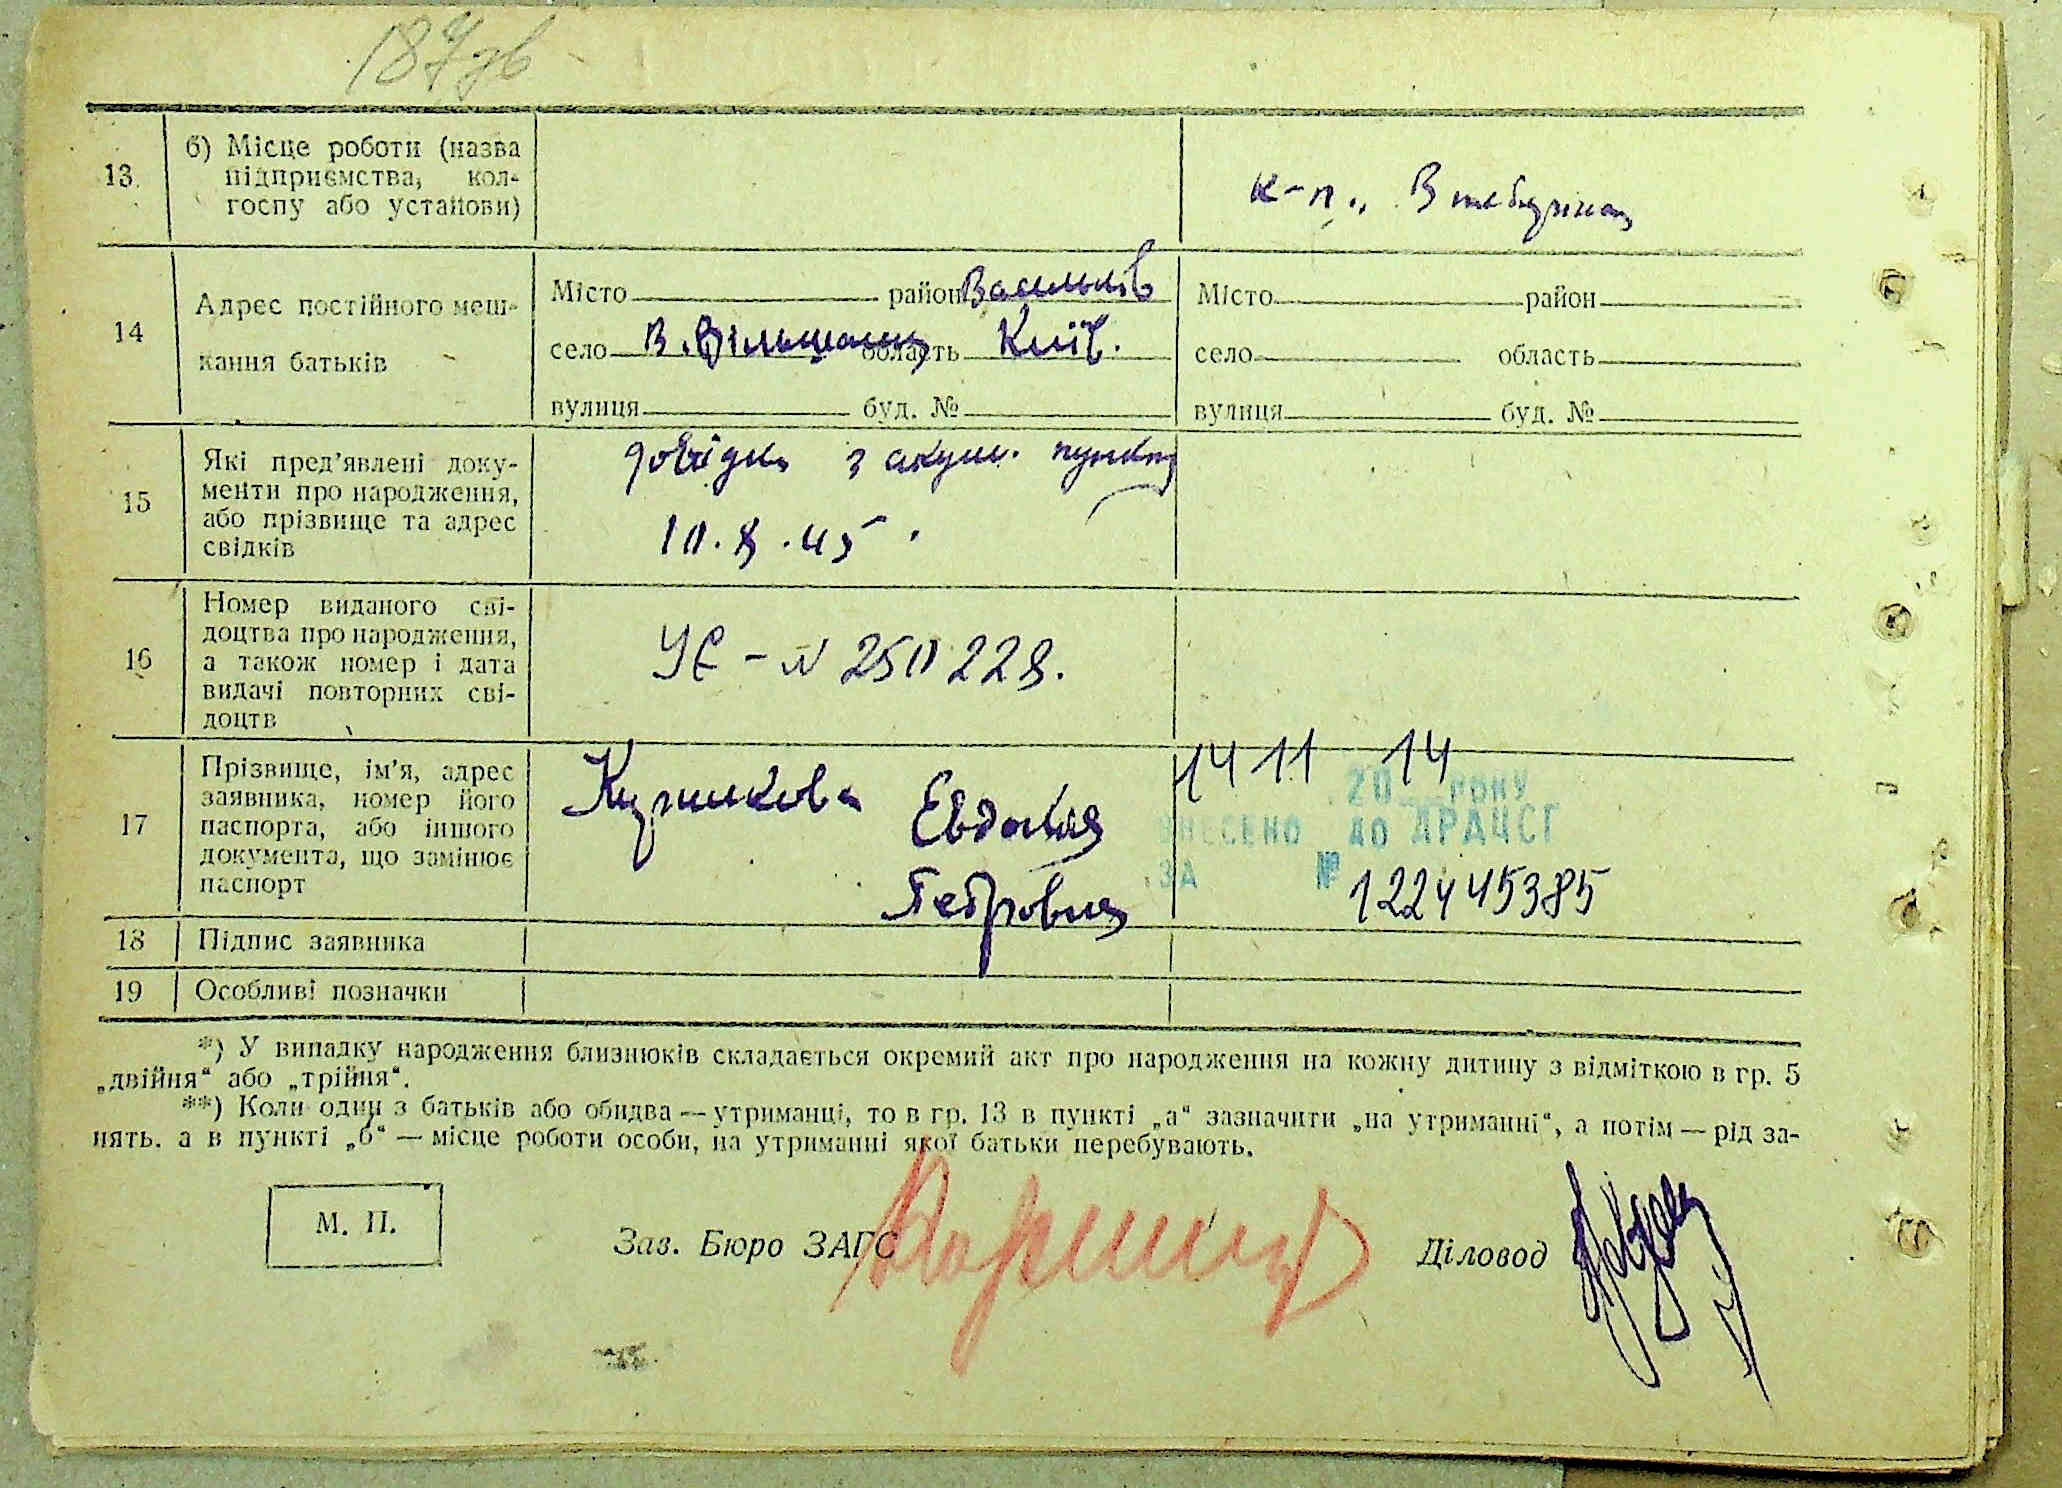 187зв
13. б) Місце роботи (назва
підприємства, кол-
госпу або установи)
к-п „
14 Адрес постійного меш-
кання батьків
Місто район Васильків
село В. Вільшанка область Київ.
вулиця буд. №
Місто район
село область
вулиця буд. №
15 Які пред’явлені доку-
менти про народження,
або прізвище та адрес
свідків
довідка з акуш. пункту
10.X.45.
16 Номер виданого сві-
доцтва про народження,
а також номер і дата
видачі повторних сві-
доцтв
УЄ - N 250228.
17 Прізвище, ім’я, адрес
заявника, номер його
паспорта, або іншого
документа, що замінює
паспорт
Евдокия
Петровна
14 11 14
20 року
ВНЕСЕНО ДО ДРАЦСГ
ЗА № 122445385
18 Підпис заявника
19 Особливі позначки
*) У випадку народження близнюків складається окремий акт про народження на кожну дитину з відміткою в гр. 5
„двійня“ або „трійня“.
**) Коли один з батьків або обидва — утриманці, то в гр. 13 в пункті „а“ зазначити „на утриманні“, а потім — рід за-
нять. а в пункті „б“ — місце роботи особи, на утриманні якої батьки перебувають.
М. П.
Зав. Бюро ЗАГС
Діловод